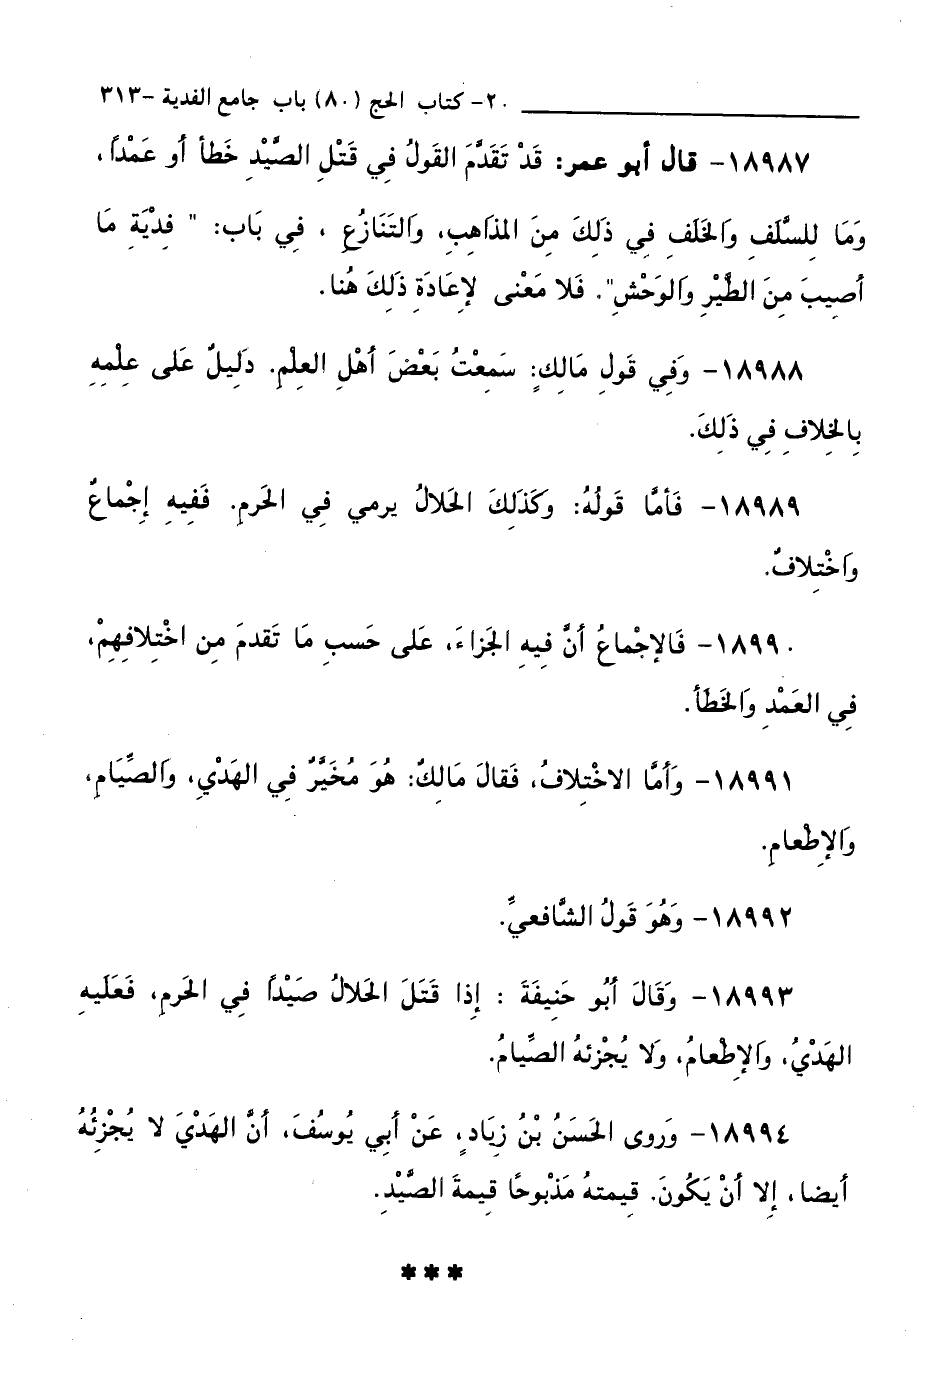 ٢٠- كتاب الحج (٨٠) باب جامع الفدية -٣١٣
١٨٩٨٧- قال أبو عمر: قَدْ تَقَدَّمَ القَولُ فِي قَتْلِ الصَّيْدِ خَطأ أو عَمْداً،
وَمَا لِلسَّلَفِ وَالخَلَفِ فِي ذَلِكَ مِنَ المذَاهِبِ، وَالتَنَازُعِ ، فِي بَاب: " فِدْيَةِ مَا
أصِيبَ مِنَ الطَّيْرِ وَالوَحْشِ". فَلا مَعْنى لإِعَادَةِ ذَلِكَ هُنا.
١٨٩٨٨- وَفِي قَولِ مَالِكٍ: سَمِعْتُ بَعْضَ أهْلِ العِلْمِ. دَلِيلٌ عَلى عِلْمِهِ
بِالخِلافِ فِي ذَلِكَ.
١٨٩٨٩- فَأمَّا قَولُهُ: وكَذَلِكَ الحَلالُ يرمي فِي الحَرمِ. فَفِيهِ إجْماعٌ
وَاخْتِلافٌ.
١٨٩٩٠- فَالإجْماعُ أنَّ فِيهِ الجَزاءَ، عَلى حَسبِ مَا تَقدمَ مِن اخْتِلافِهِمْ،
فِي العَمْدِ وَالخَطَأ.
١٨٩٩١- وَأمَّا الاخْتِلافُ، فَقالَ مَالِكٌ: هُوَ مُخَيَّرٌ فِي الهَدْيِ، وَالصِّيَامِ،
وَالإطْعامِ.
١٨٩٩٢- وَهُوَ قَولُ الشَّافعيِّ.
١٨٩٩٣- وَقَالَ أبُو حَنِيفَةَ : إذا قَتَلَ الحَلالُ صَيْداً فِي الحَرمِ، فَعَلَيهِ
الهَدْيُ، وَالإطْعامُ، وَلا يُجْزئهُ الصِّيامُ.
١٨٩٩٤- وَروى الحَسَنُ بْنُ زِيَادٍ، عَنْ أبي يُوسُفَ، أنَّ الهَدْيَ لا يُجْزِئُهُ
أيضا، إلا أنْ يَكُونَ. قِيمتهُ مَذْبوحًا قِيمةَ الصَّيْدِ.
***